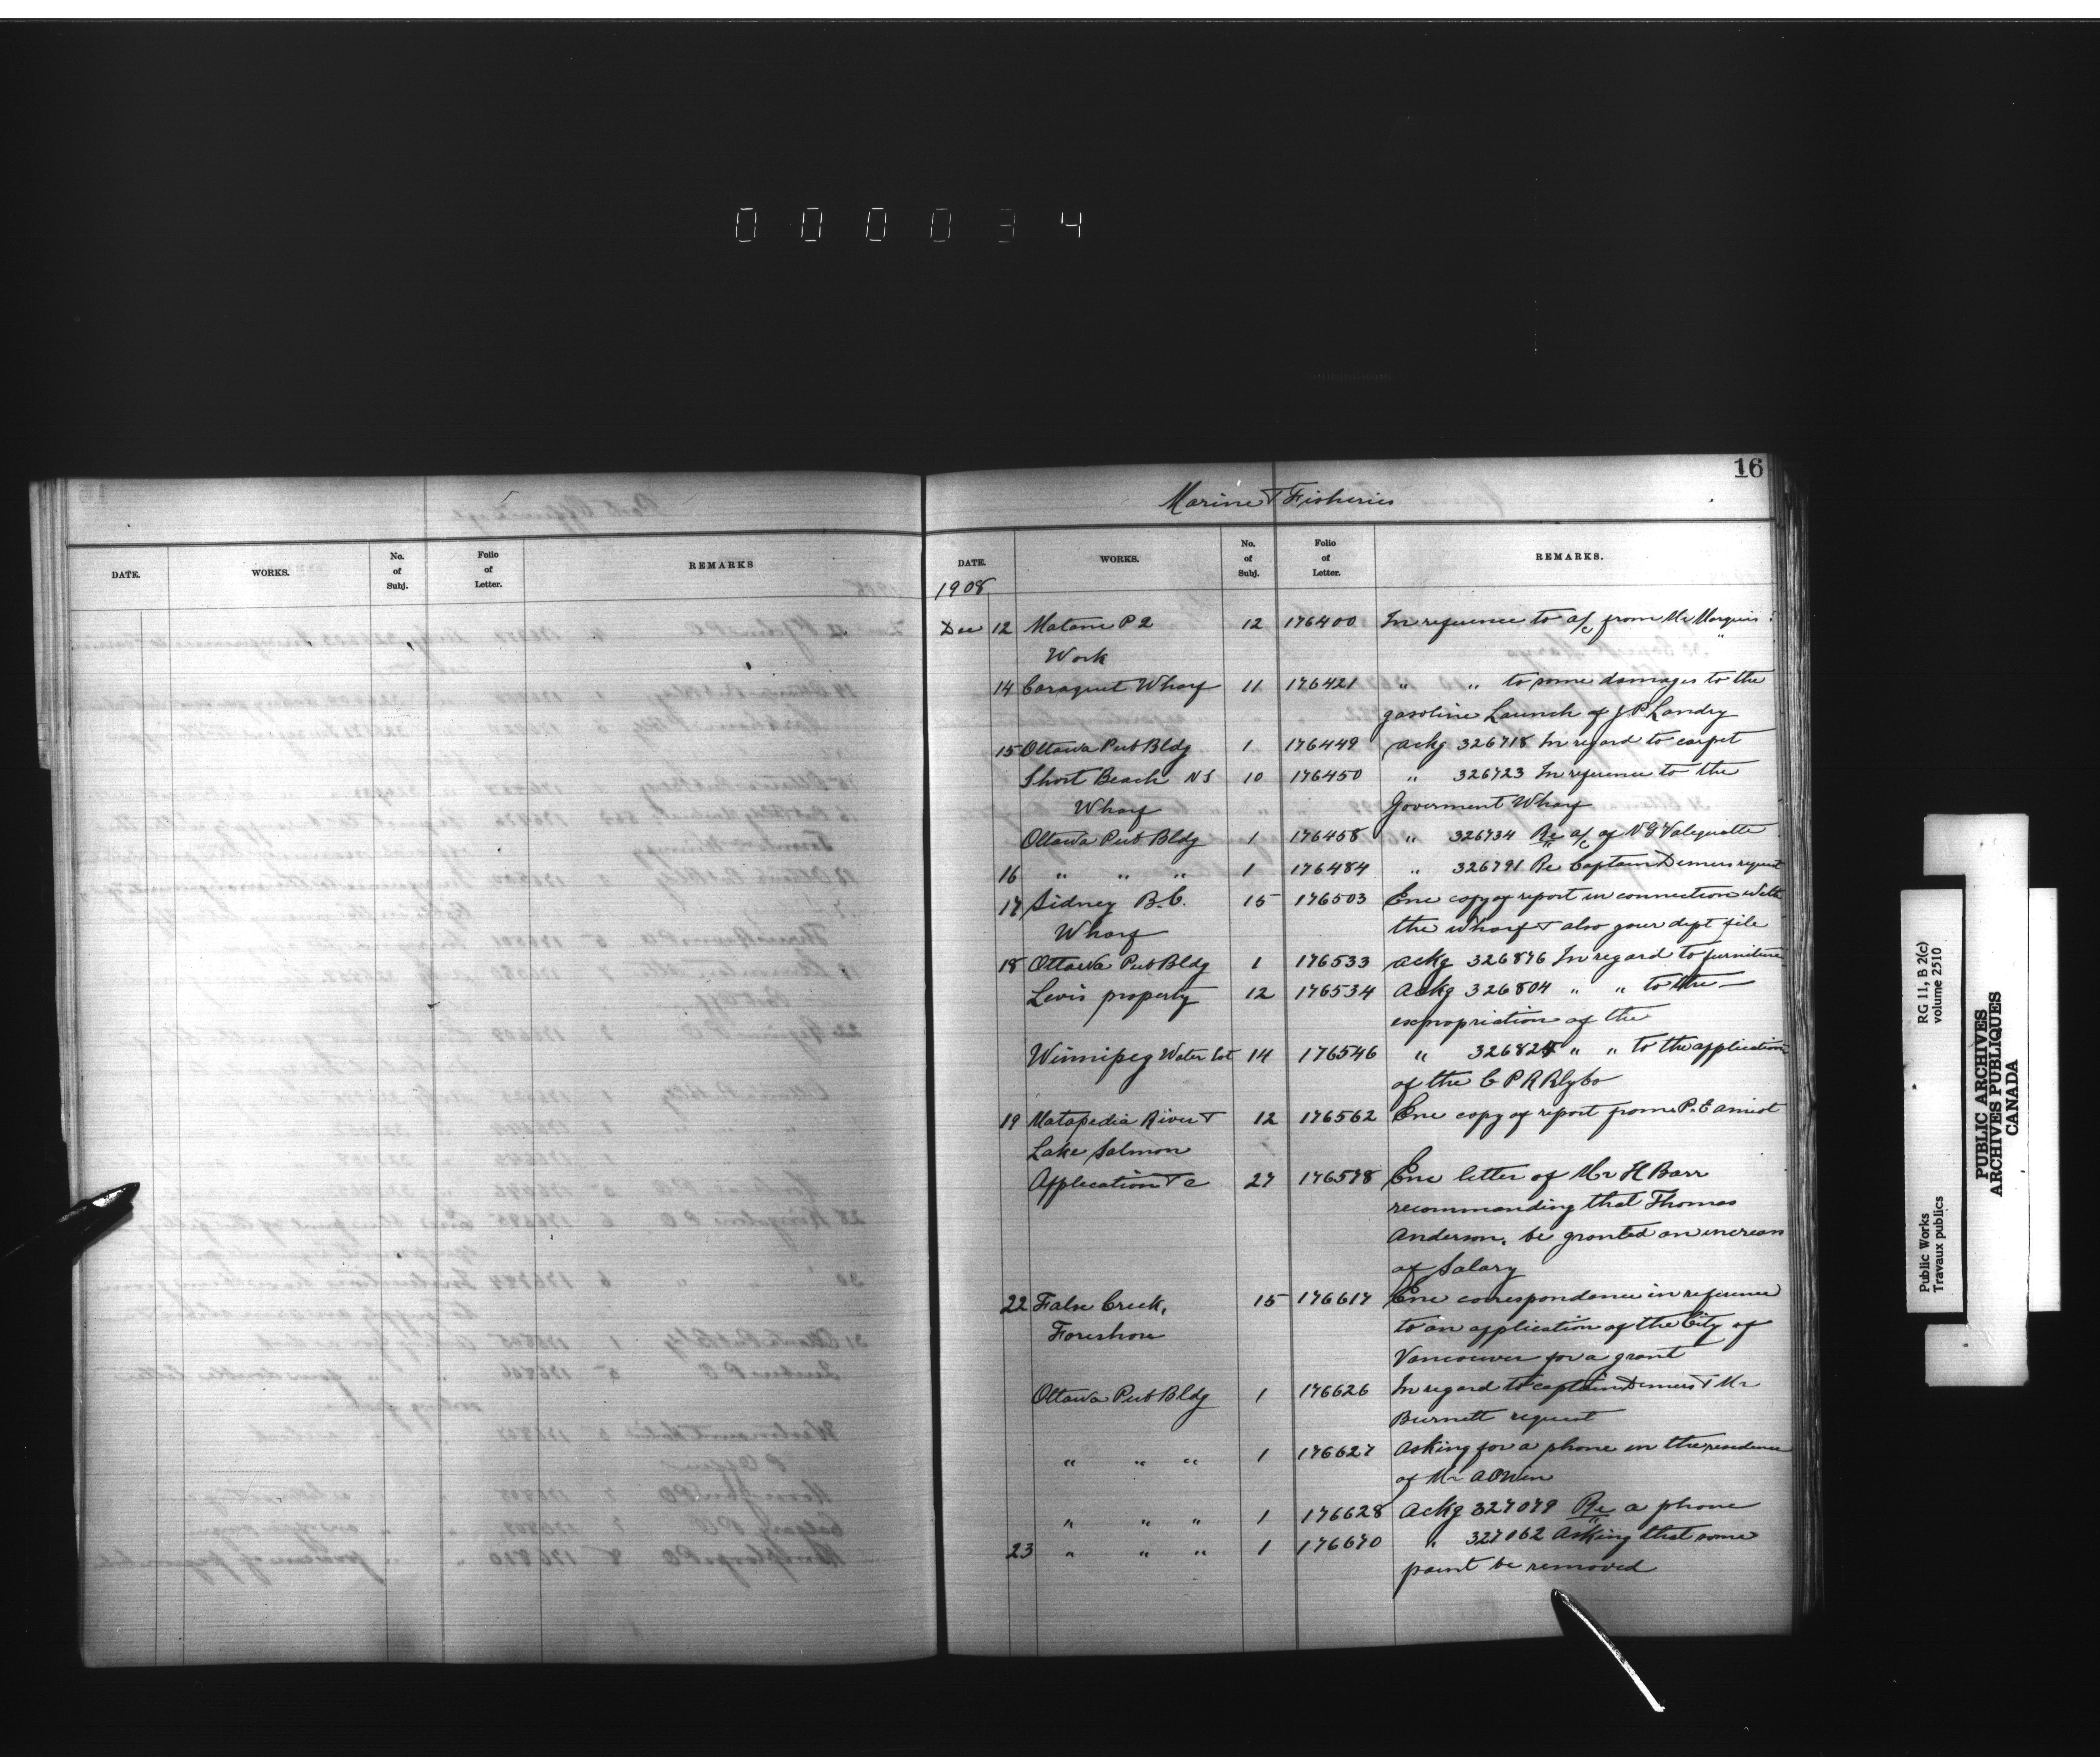 000034
16
Marine & Fisheries
DATE. WORKS. No. of Subj. Folio of Letter. REMARKS
DATE. WORKS. No. of Subj. Folio of Letter. REMARKS.
1908
Dec 12 Matane P2 12 176400 In reference to a/c from Mr Marquis
Work
14 Caraquet Wharf 11 176421 " " to some damages to the
gasoline Launch of J P Landry
15 Ottawa Pub Bldg 1 176449 Ackg 326718 In regard to carpet
Short Beach NS 10 176450 " 326723 In reference to the
Wharf Goverment Wharf
Ottawa Pub Bldg 1 176458 " 326734 Re a/c of N G Valiquette
16 " " " 1 176484 " 326791 Re Captain Demers request
17 Sidney B.C. 15 176503 Enc copy of report in connection with
Wharf the wharf & also your dept file
18 Ottawa Pub Bldg 1 176533 Ackg 326876 In regard to furniture
Levis property 12 176534 Ackg 326804 " " to the
expropriation of the
Winnipeg Water Lot 14 176546 " 326825 " " to the application
of the C P R Rly Co
19 Matapedia River & 12 176562 Enc copy of report from P. E Amiot
Lake Salmon
Application &c 27 176578 Enc letter of Mr H Barr
recommanding that Thomas
Anderson, be granted an increase
of Salary
22 False Creek, 15 176617 Enc correspondence in reference
Foreshore to an application of the City of
Vancouver for a grant
Ottawa Pub Bldg 1 176626 In regard to captain Demers & Mr
Burnett request
" " " 1 176627 Asking for a phone in the residence
of Mr
" " " 1 176628 Ackg 327079 Re a phone
23 " " " 1 176670 " 327062 Asking that some
paint be removed
Public Works RG 11, B 2(c)
Travaux publics volume 2510
PUBLIC ARCHIVES
ARCHIVES PUBLIQUES
CANADA